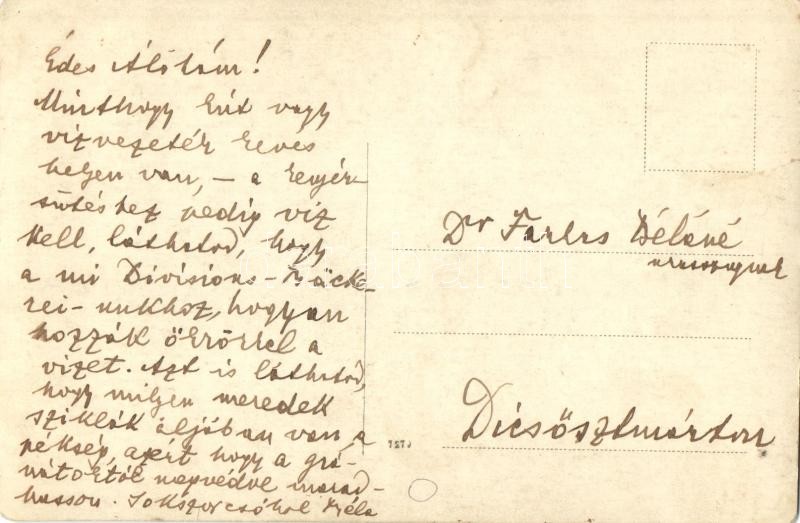 Édes Álókám!
Minthogy kút vagy
vízvezeték kevés
helyen van, – a kenyér-
sütéshez pedig víz
kell, láthatod, hogy
a mi Divisions-Bäcke-
rei-nunkhoz, hogyan
hozzák ökörrel a
vizet. Azt is láthatod,
hogy milyen meredek
sziklák aljában van a
pékség, azért hogy a grá-
nátoktól megvédve marad-
hasson. Sokszor csókol Béla
Dr Farkas Béláné
uraságnak
Dicsőszentmárton